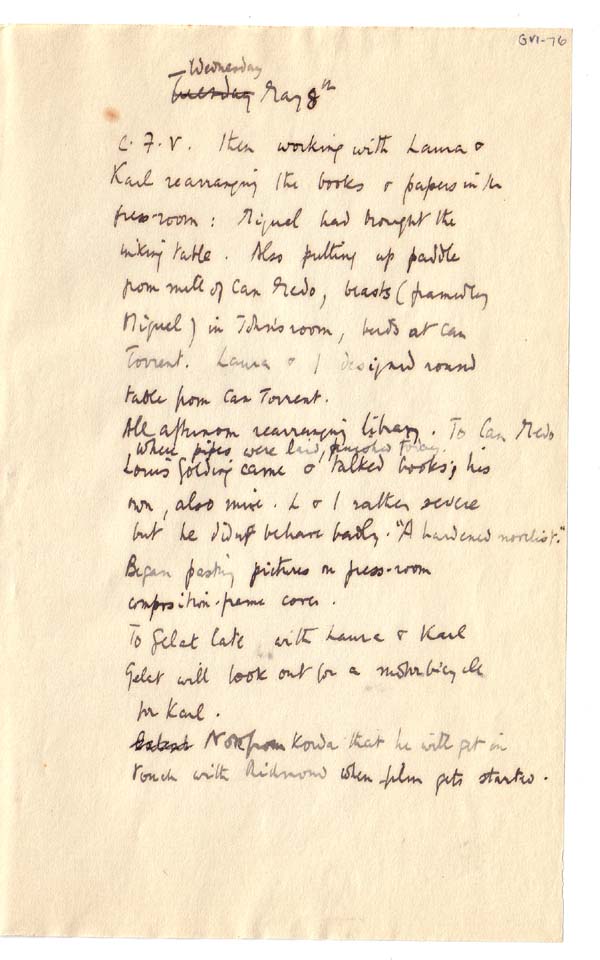 GVI-76
Wednesday
Tuesday May 8th
C. F. V. Then working with Laura &
Karl rearranging the books & papers in the
press-room: Miguel had brought the
inking table. Also putting up paddle
from mill of Can Medo, beasts (framed by
Miguel) in John's room, beds at Can
Torrent. Laura & I designed round
table from Can Torrent.
All afternoon rearranging library. To Can Medo
, where pipes were laid, finished today.
Louis Golding came & talked books; his
own, also mine. L & I rather severe
but he didn't behave badly. "A hardened novelist."
Began pasting pictures on press-room
composition-frame cover.
To Gelat late with Laura & Karl
Gelat will look out for a motorbicycle
for Karl.
Note from Korda that he will get in
touch with Richmond when film gets started.